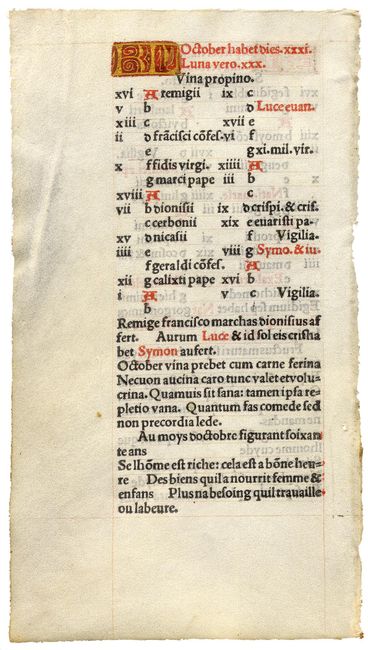 KL October habet dies. xxxi.
Luna vero. xxx.
Vina propino.
xvi A remigii
v b
xiii c
ii d frãcisci cõfes.
e
x f fidis virgi.
g marci pape
xviii A
vii b dionisii
c cerbonii
xv d nicasii
iiii e
f geraldi cõfes.
xii g calixti pape
i A
b
ix c
d Luce euan.
xvii e
vi f
g xi. mil. vir.
xiiii A
iii b
c
ix d crispi. & cris.
xix e euaristi pa-
f Vigilia.
viii g Symo. & iu.
A
xvi b
v c Vigilia.
Remige francisco marchas dionisius af
fert. Aurum Luce & id sol eis crisha
bet Symon aufert.
October vina prebet cum carne ferina
Necuon aucina caro tunc valet et volu-
crina. Quamuis sit sana: tamen ipsa re-
pletio vana. Quantum fas comede sed
non precordia lede.
Au moys doctobre figurant soixan
te ans
Se lhõme est riche: cela est a bõne heu-
re Des biens quil a nourrit femme &
enfans Plus na besoing quil trauaille
ou labeure.